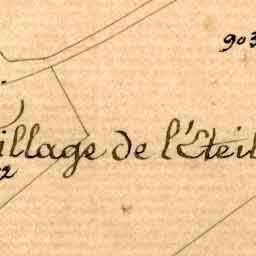 903
illage de l'Eteil
2